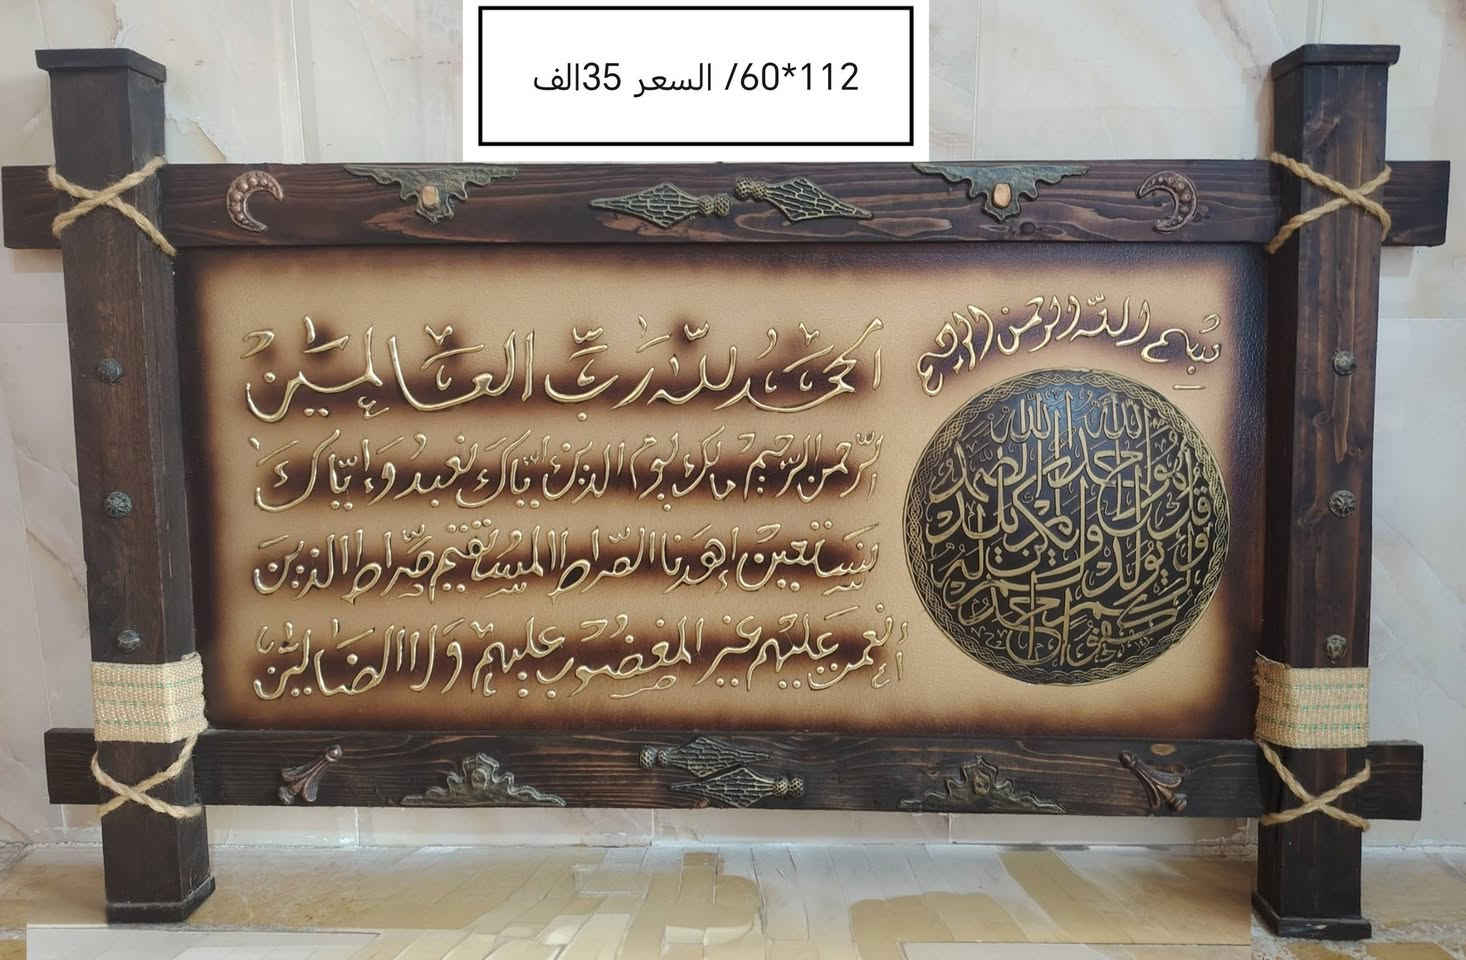 112*60/ السعر 35الف
بسم الله الرحمن الرحيم
الحمد لله رب العالمين
الرحمن الرحيم مالك يوم الدين إياك نعبد وإياك
نستعين إهدنا الصراط المستقيم صراط الذين
أنعمت عليهم غير المغضوب عليهم ولا الضالين
قل هو الله أحد الله الصمد
لم يلد ولم يولد ولم يكن له
كفوا أحد